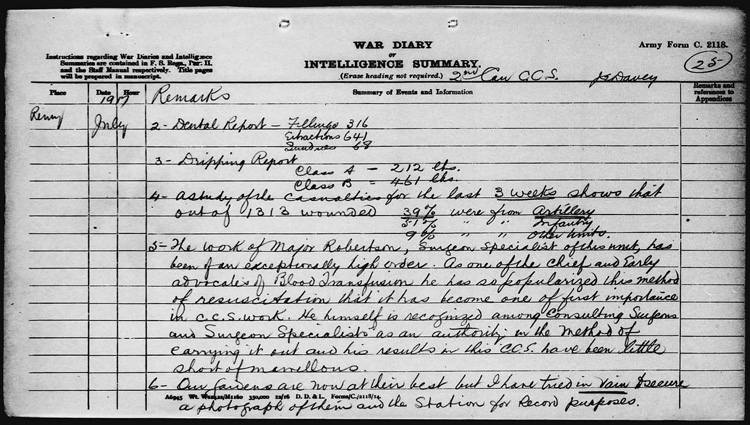 WAR DIARY
or
INTELLIGENCE SUMMARY.
(Erase heading not required.)
Army Form C. 2118.
Instructions regarding War Diaries and Intelligence
Summaries are contained in F. S. Regs., Part II.
and the Staff Manual respectively. Title pages
will be prepared in manuscript.
2nd Can C.C.S.
Davey
25
Place
Date
Hour
Summary of Events and Information
Remarks and
references to
Appendices
1917
Remarks
Remy
July
2- Dental Report - Fillings 316
Extractions 641
Sundries 68
3- Dripping Report
Class A - 212 lbs.
Class B = 461 lbs.
4- A study of the casualties for the last 3 weeks shows that
out of 1313 wounded 39% were from Artillery
" " Infantry
9% " " Other Units.
5- The work of Major Robertson, Surgeon Specialist of this unit, has
been of an exceptionally high order. As one of the Chief and Early
advocates of Blood Transfusion he has so popularized this method
of resuscitation that it has become one of first importance
in C.C.S. work. He himself is recognized among Consulting Surgeons
and Surgeon Specialists as an authority in the method of
carrying it out and his results in this C.C.S. have been little
short of marvellous.
6- Our gardens are now at their best but I have tried in vain to secure
a photograph of them and the Station for Record purposes.
D. D. & L. Forms/C./2118/14.